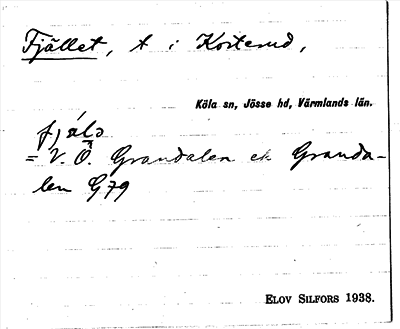 Fjället, t i Kosterud,
Köla sn, Jösse hd, Värmlands län.
fjälə
= V. Ö. Grandalen ek Granda-
len G79
ELOV SILFORS 1938.